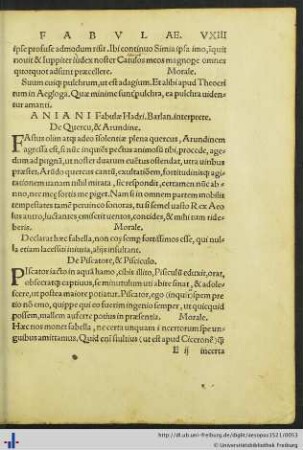 FABVLAE. VXIII
ipse profuse admodum risit. Ibi continuo Simia ipsa. imo, iquit
nouit & Iuppiter iudex noster Catulos meos magnope omnes
quotquot adsunt præcellere. Morale.
Suum cuiq; pulchrum, ut est adagium. Et alibi apud Theocri
tum in Aegloga. Quæ minime sunt pulchra, ea pulchra uiden-
tur amanti.
ANIANI Fabulæ Hadri. Barlan. interprete.
De Quercu, & Arundine.
FAstus olim atq; adeo insolentiæ plena quercus, Arundinem
agressa est, si inquiens pectus animosū tibi, procede, age
dum ad pugnā, ut noster duarum euētus ostendat, utra uiribus
præstet. Arūdo quercus tantā, exultatiōem, fortitudinisq; agi
tationem nihil mirata, sic respondit, certamen nūc ab-
nuo, nec meę sortis me piget. Nam si in omnem partem mobilis
tempestates tamē peruinco sonoras, tu si semel uasto Rex Aeo
lus antro, luctantes emiserit uentos, concides, & mihi tum ride
beris. Morale.
Declarat hæc fabella, non eos semp fortissimos esse, qui nul-
la etiam lacessiti iniuria, alijs insultant.
De Piscatore, & Pisciculo.
PIscator iacto in aquā hamo, cibis illito, Pisciculū eduxit, orat,
obsecratq; captiuus, se minutulum uti abire sinat, & adole-
scere, ut postea maiore potiatur. Piscator, ego (inquit) spem pre
tio nō emo, quippe qui eo fuerim ingenio semper, ut quicquid
possem, mallem auferre potius in præsentia. Morale.
Hæc nos monet fabella, ne certa unquam incertorum spe un-
guibus amittamus. Quid eni stultius (ut est apud Ciceronē) q̄
E ij incerta
http://dl.ub.uni-freiburg.de/diglit/aesopus1521/0053
© Universitätsbibliothek Freiburg